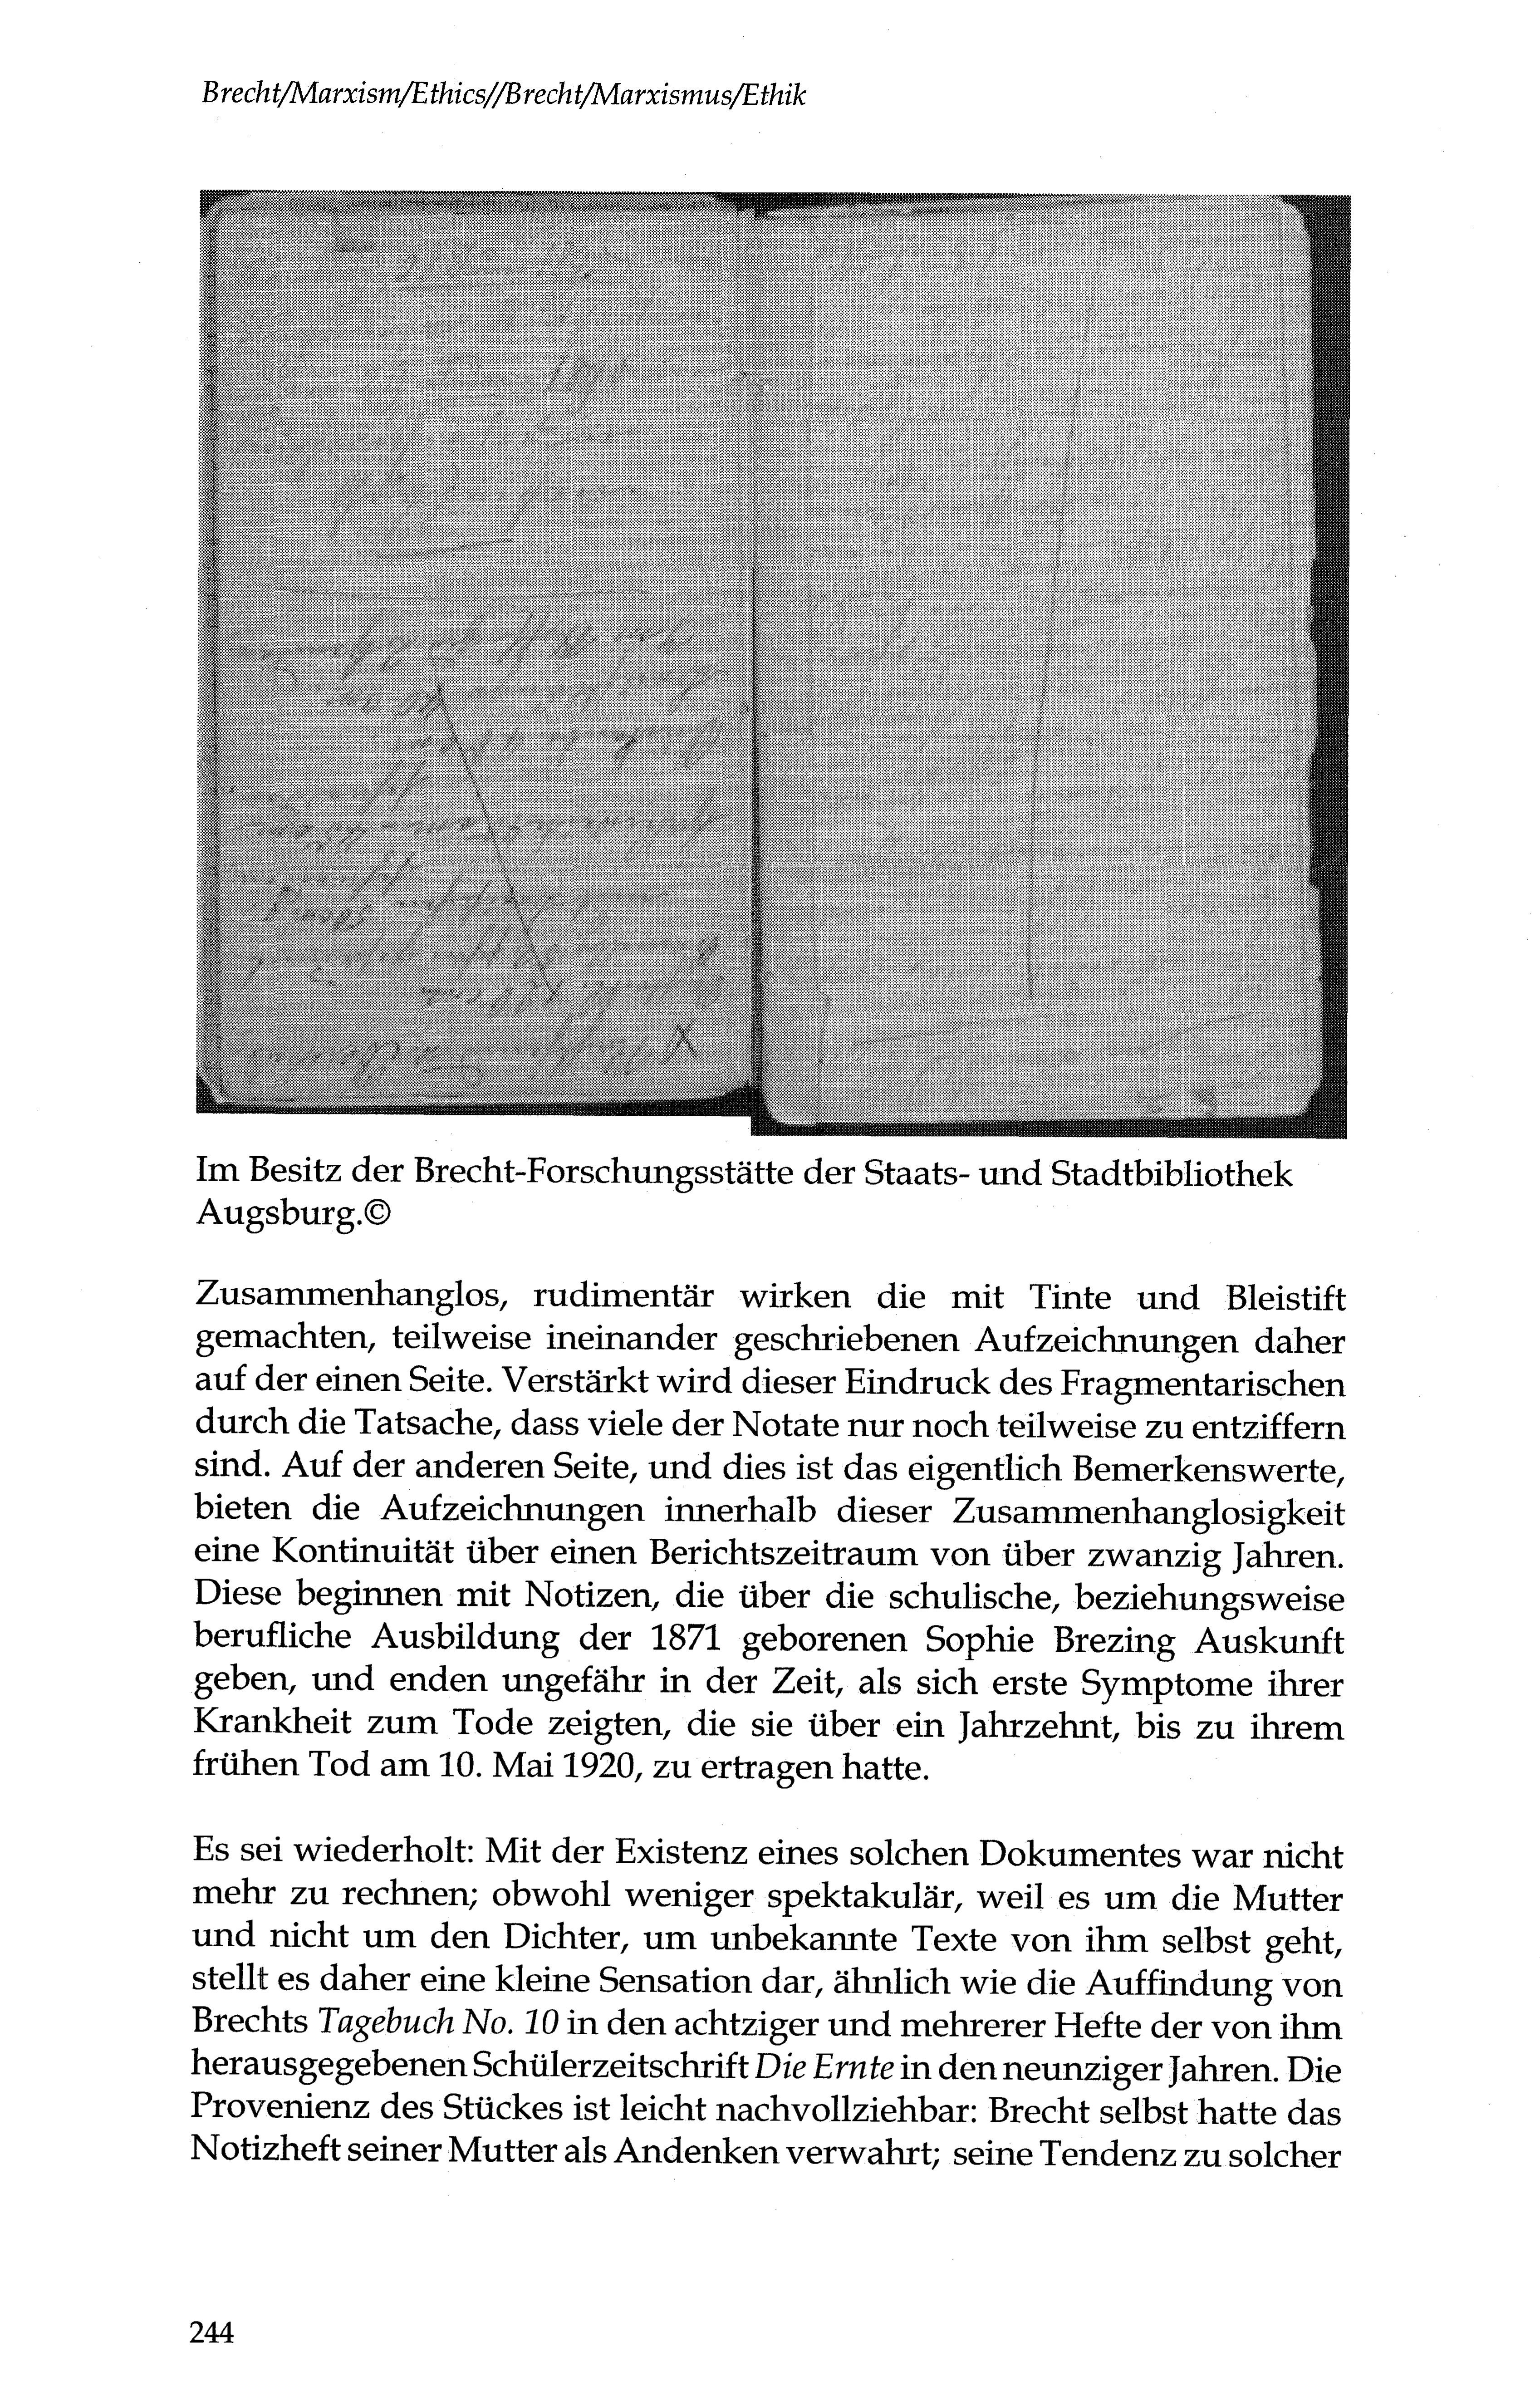 Brecht/Marxism/Ethics//Brecht/Marxismus/Ethik
Im Besitz der Brecht-Forschungsstätte der Staats- und Stadtbibliothek
Augsburg.©
Zusammenhanglos, rudimentär wirken die mit Tinte und Bleistift
gemachten, teilweise ineinander geschriebenen Aufzeichnungen daher
auf der einen Seite. Verstärkt wird dieser Eindruck des Fragmentarischen
durch die Tatsache, dass viele der Notate nur noch teilweise zu entziffern
sind. Auf der anderen Seite, und dies ist das eigentlich Bemerkenswerte,
bieten die Aufzeichnungen innerhalb dieser Zusammenhanglosigkeit
eine Kontinuität über einen Berichtszeitraum von über zwanzig Jahren.
Diese beginnen mit Notizen, die über die schulische, beziehungsweise
berufliche Ausbildung der 1871 geborenen Sophie Brezing Auskunft
geben, und enden ungefähr in der Zeit, als sich erste Symptome ihrer
Krankheit zum Tode zeigten, die sie über ein Jahrzehnt, bis zu ihrem
frühen Tod am 10. Mai 1920, zu ertragen hatte.
Es sei wiederholt: Mit der Existenz eines solchen Dokumentes war nicht
mehr zu rechnen; obwohl weniger spektakulär, weil es um die Mutter
und nicht um den Dichter, um unbekannte Texte von ihm selbst geht,
stellt es daher eine kleine Sensation dar, ähnlich wie die Auffindung von
Brechts Tagebuch No. 10 in den achtziger und mehrerer Hefte der von ihm
herausgegebenen Schülerzeitschrift Die Ernte in den neunziger Jahren. Die
Provenienz des Stückes ist leicht nachvollziehbar: Brecht selbst hatte das
Notizheft seiner Mutter als Andenken verwahrt; seine Tendenz zu solcher
244